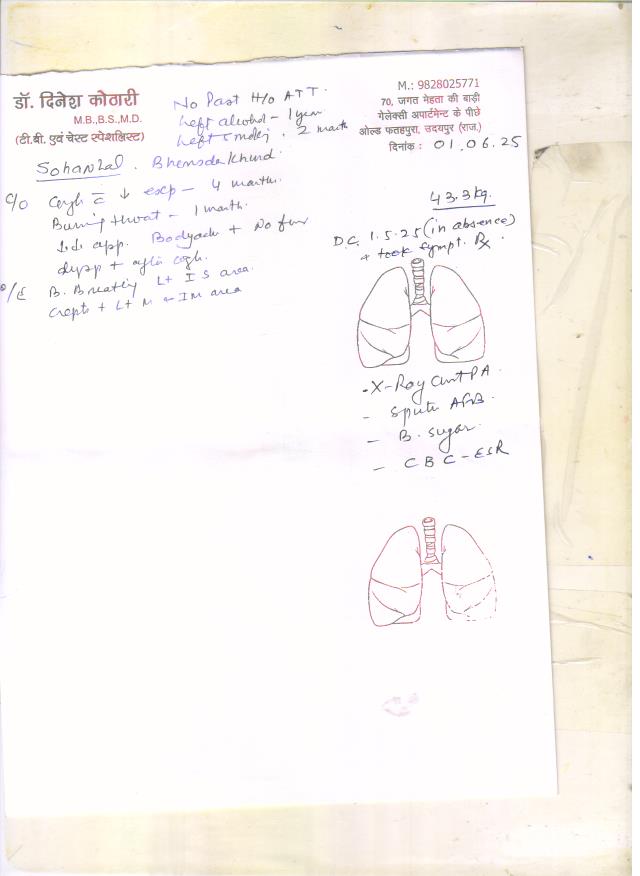 डॉ. दिनेश कोठारी
M.B.,B.S.,M.D.
(टी.बी. एवं चेस्ट स्पेशलिस्ट)
No Past H/o ATT.
Left alcohol - 1 year
Left smokj. 2 month
M.: 9828025771
70, जगत मेहता की बाड़ी
गेलेक्सी अपार्टमेन्ट के पीछे
ओल्ड फतहपुरा, उदयपुर (राज.)
दिनांक : 01.06.25
Sohanlal. Bhemsda khurd.
C/o Cough c̄ ↓ exp - 4 months.
Burning throat - 1 month.
app. Bodyache + No fever
dysp + after cough.
O/E B. Breathing Lt IS area.
Crepts + Lt M - IM area
43.3kg.
D.C. 1.5.25 (in absence)
+ took sympt. Rx.
- X-Ray Chest PA.
- Sputum AFB.
- B. sugar.
- CBC - ESR